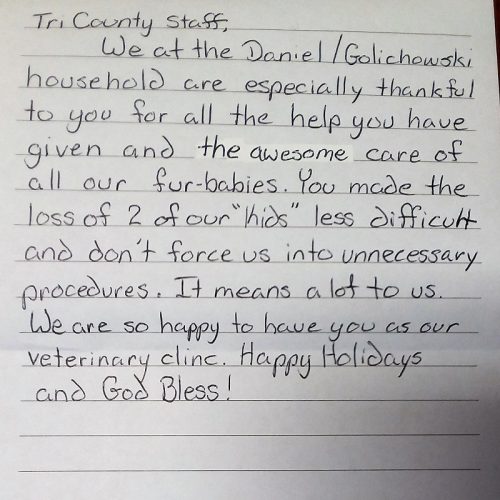 Tri County Staff,
We at the Daniel/Golichowski
household are especially thankful
to you for all the help you have
given and the awesome care of
all our fur-babies. You made the
loss of 2 of our "kids" less difficult
and don't force us into unnecessary
procedures. It means a lot to us.
We are so happy to have you as our
veterinary clinc. Happy Holidays
and God Bless!